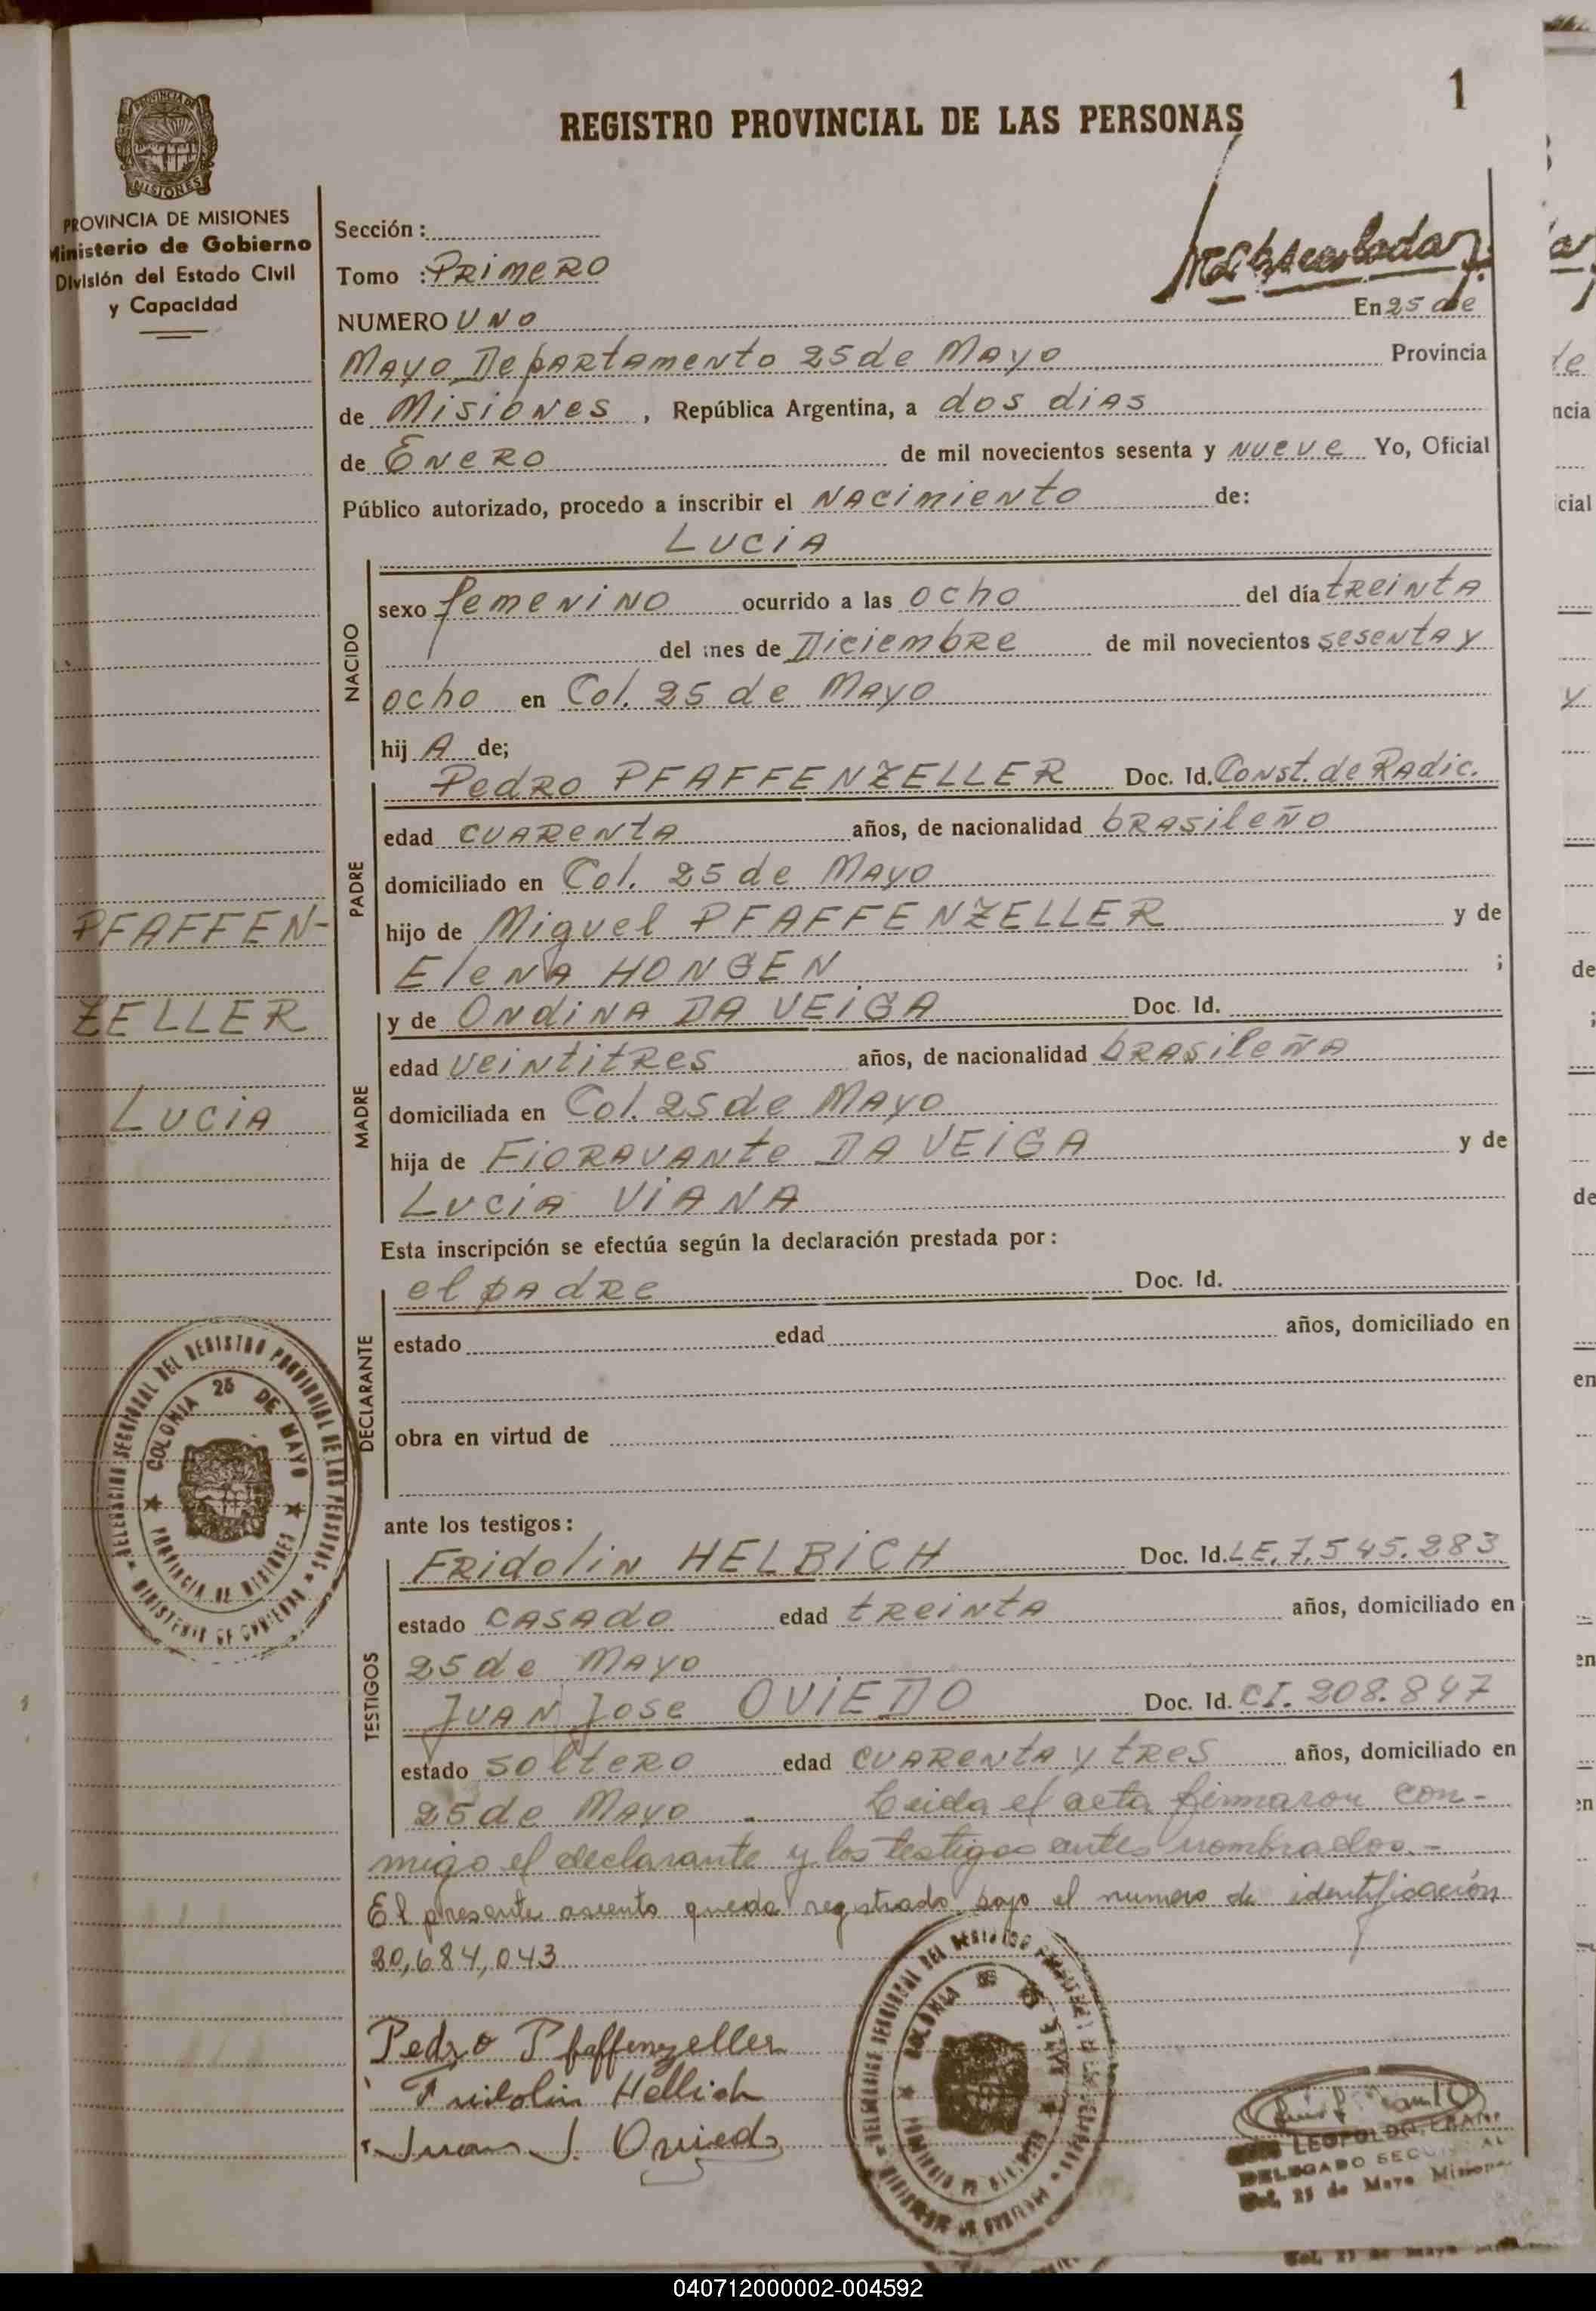 1
REGISTRO PROVINCIAL DE LAS PERSONAS
PROVINCIA DE MISIONES
PROVINCIA DE MISIONES
Ministerio de Gobierno
División del Estado Civil
y Capacidad
Sección :
Tomo : PRIMERO
NUMERO UNO En 25 de
MAYO DepARTAMENTO 25 de MAYO Provincia
de MISIONES , República Argentina, a dos dIAS
de ENERO de mil novecientos sesenta y NUEVE Yo, Oficial
Público autorizado, procedo a inscribir el NACIMIENTO de:
LUCIA
NACIDO
sexo femenino ocurrido a las ocho del día tREINTA
del mes de DICIEMBRE de mil novecientos SESENTA y
ocho en Col. 25 de MAYO
hij A de;
PADRE
PedRO PFAFFENZELLER Doc. Id. CONST. de RAdic.
edad CUARENTA años, de nacionalidad bRASileÑO
domiciliado en Col. 25 de MAYO
hijo de Miguel PFAFFENZELLER y de
ElENA HONGEN ;
PFAFFEN-
ZELLER
LUCIA
MADRE
y de ONdiNA DA VEIGA Doc. Id.
edad VEINTITRES años, de nacionalidad bRASileÑA
domiciliada en Col. 25 de MAYO
hija de FIORAVANTE DA VEIGA y de
LUCIA VIANA
Esta inscripción se efectúa según la declaración prestada por :
DECLARANTE
el pAdRE Doc. Id.
estado edad años, domiciliado en
obra en virtud de
DELEGACION SECCIONAL DEL REGISTRO PROVINCIAL DE LAS PERSONAS
COLONIA 25 DE MAYO
PROVINCIA DE MISIONES
MINISTERIO DE GOBIERNO
ante los testigos :
TESTIGOS
FRIdoliN HELBICH Doc. Id. LE. 7.545.283
estado CASAdo edad tREINTA años, domiciliado en
25 de MAYO
JUAN JOSE OVIEDO Doc. Id. CI. 208.847
estado SOLTERO edad CUARENTA y tRES años, domiciliado en
25 de MAYO . Leida el acta firmaron con-
migo el declarante y los testigos antes nombrados.-
El presente asiento queda registrado bajo el numero de identificación
20,684,043
Pedro Pfaffenzeller
Fridolin Helbich
Juan J. Oviedo
DELEGACION SECCIONAL DEL REGISTRO PROVINCIAL DE LAS PERSONAS
COLONIA 25 DE MAYO
PROVINCIA DE MISIONES
MINISTERIO DE GOBIERNO
LEOPOLDO
DELEGADO SECCIONAL
Col. 25 de Mayo Misiones
040712000002-004592